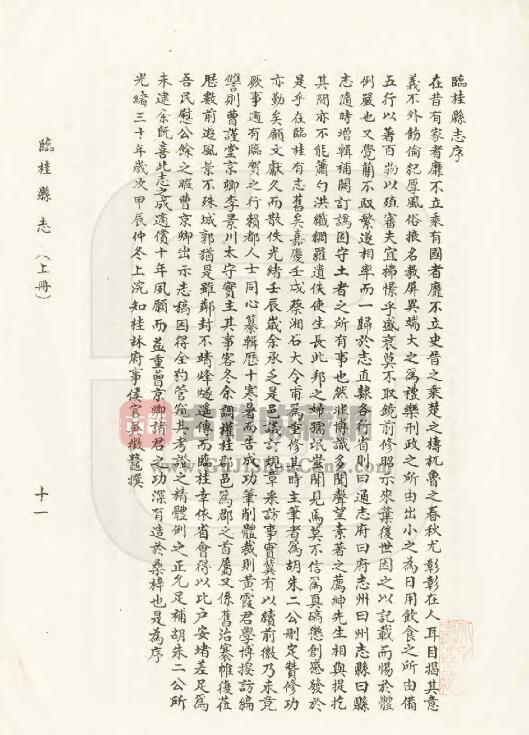 臨桂縣志序
在昔有家者靡不立乘有國者靡不立史晉之乘楚之檮杌魯之春秋尤彰彰在人耳目揭其意
義不外飭倫紀厚風俗掖名教屏異端大之為禮樂刑政之所由出小之為日用飲食之所由備
五行以著百物以殖審夫宜稀懍乎盛衰莫不取鏡前修昭示來葉後世因之以記載而惕於體
例嚴也又覺簡不取繁遂相率而一歸於志直隸各行省則曰通志府曰府志州曰州志縣曰縣
志隨時增輯補闕訂譌固守土者之所有事也然非博識多聞聲望素著之薦紳先生相與提扢
其間亦不能簫勺洪纖網羅遺佚使生長此邦之婦孺氓黎聞見焉莫不信為真碻懲創感發於
是乎在臨桂有志舊矣嘉慶壬戌蔡湘石大令甫為重修其時主筆者為胡朱二公刪定贊修功
亦勤矣顧文獻久而散佚光緒壬辰歲余承乏是邑議訂規章采訪事實冀有以續前徽乃未竟
厥事適有臨賀之行賴都人士同心纂輯歷十寒暑而告成功筆削體裁則黃霞君學博接訪編
讐則曹謹堂京卿李景川太守實主其事客冬余調權桂郡邑為郡之首屬又係舊治褰帷復莅
歷數前遊風景不殊城郭猶是雖鄰封不靖烽燧遙傳而臨桂幸依省會得以比戶安堵差足為
吾民慰公餘之暇曹京卿出示志稿因得全豹管窺其考證之精體例之正允足補胡朱二公所
未逮余既喜此志之成適償十年夙願而益重曹京卿諸君之功深有造於桑梓也是為序
光緒三十年歲次甲辰仲冬上浣知桂林府事侯官吳徵鼇撰
臨桂縣志（上冊）
十一